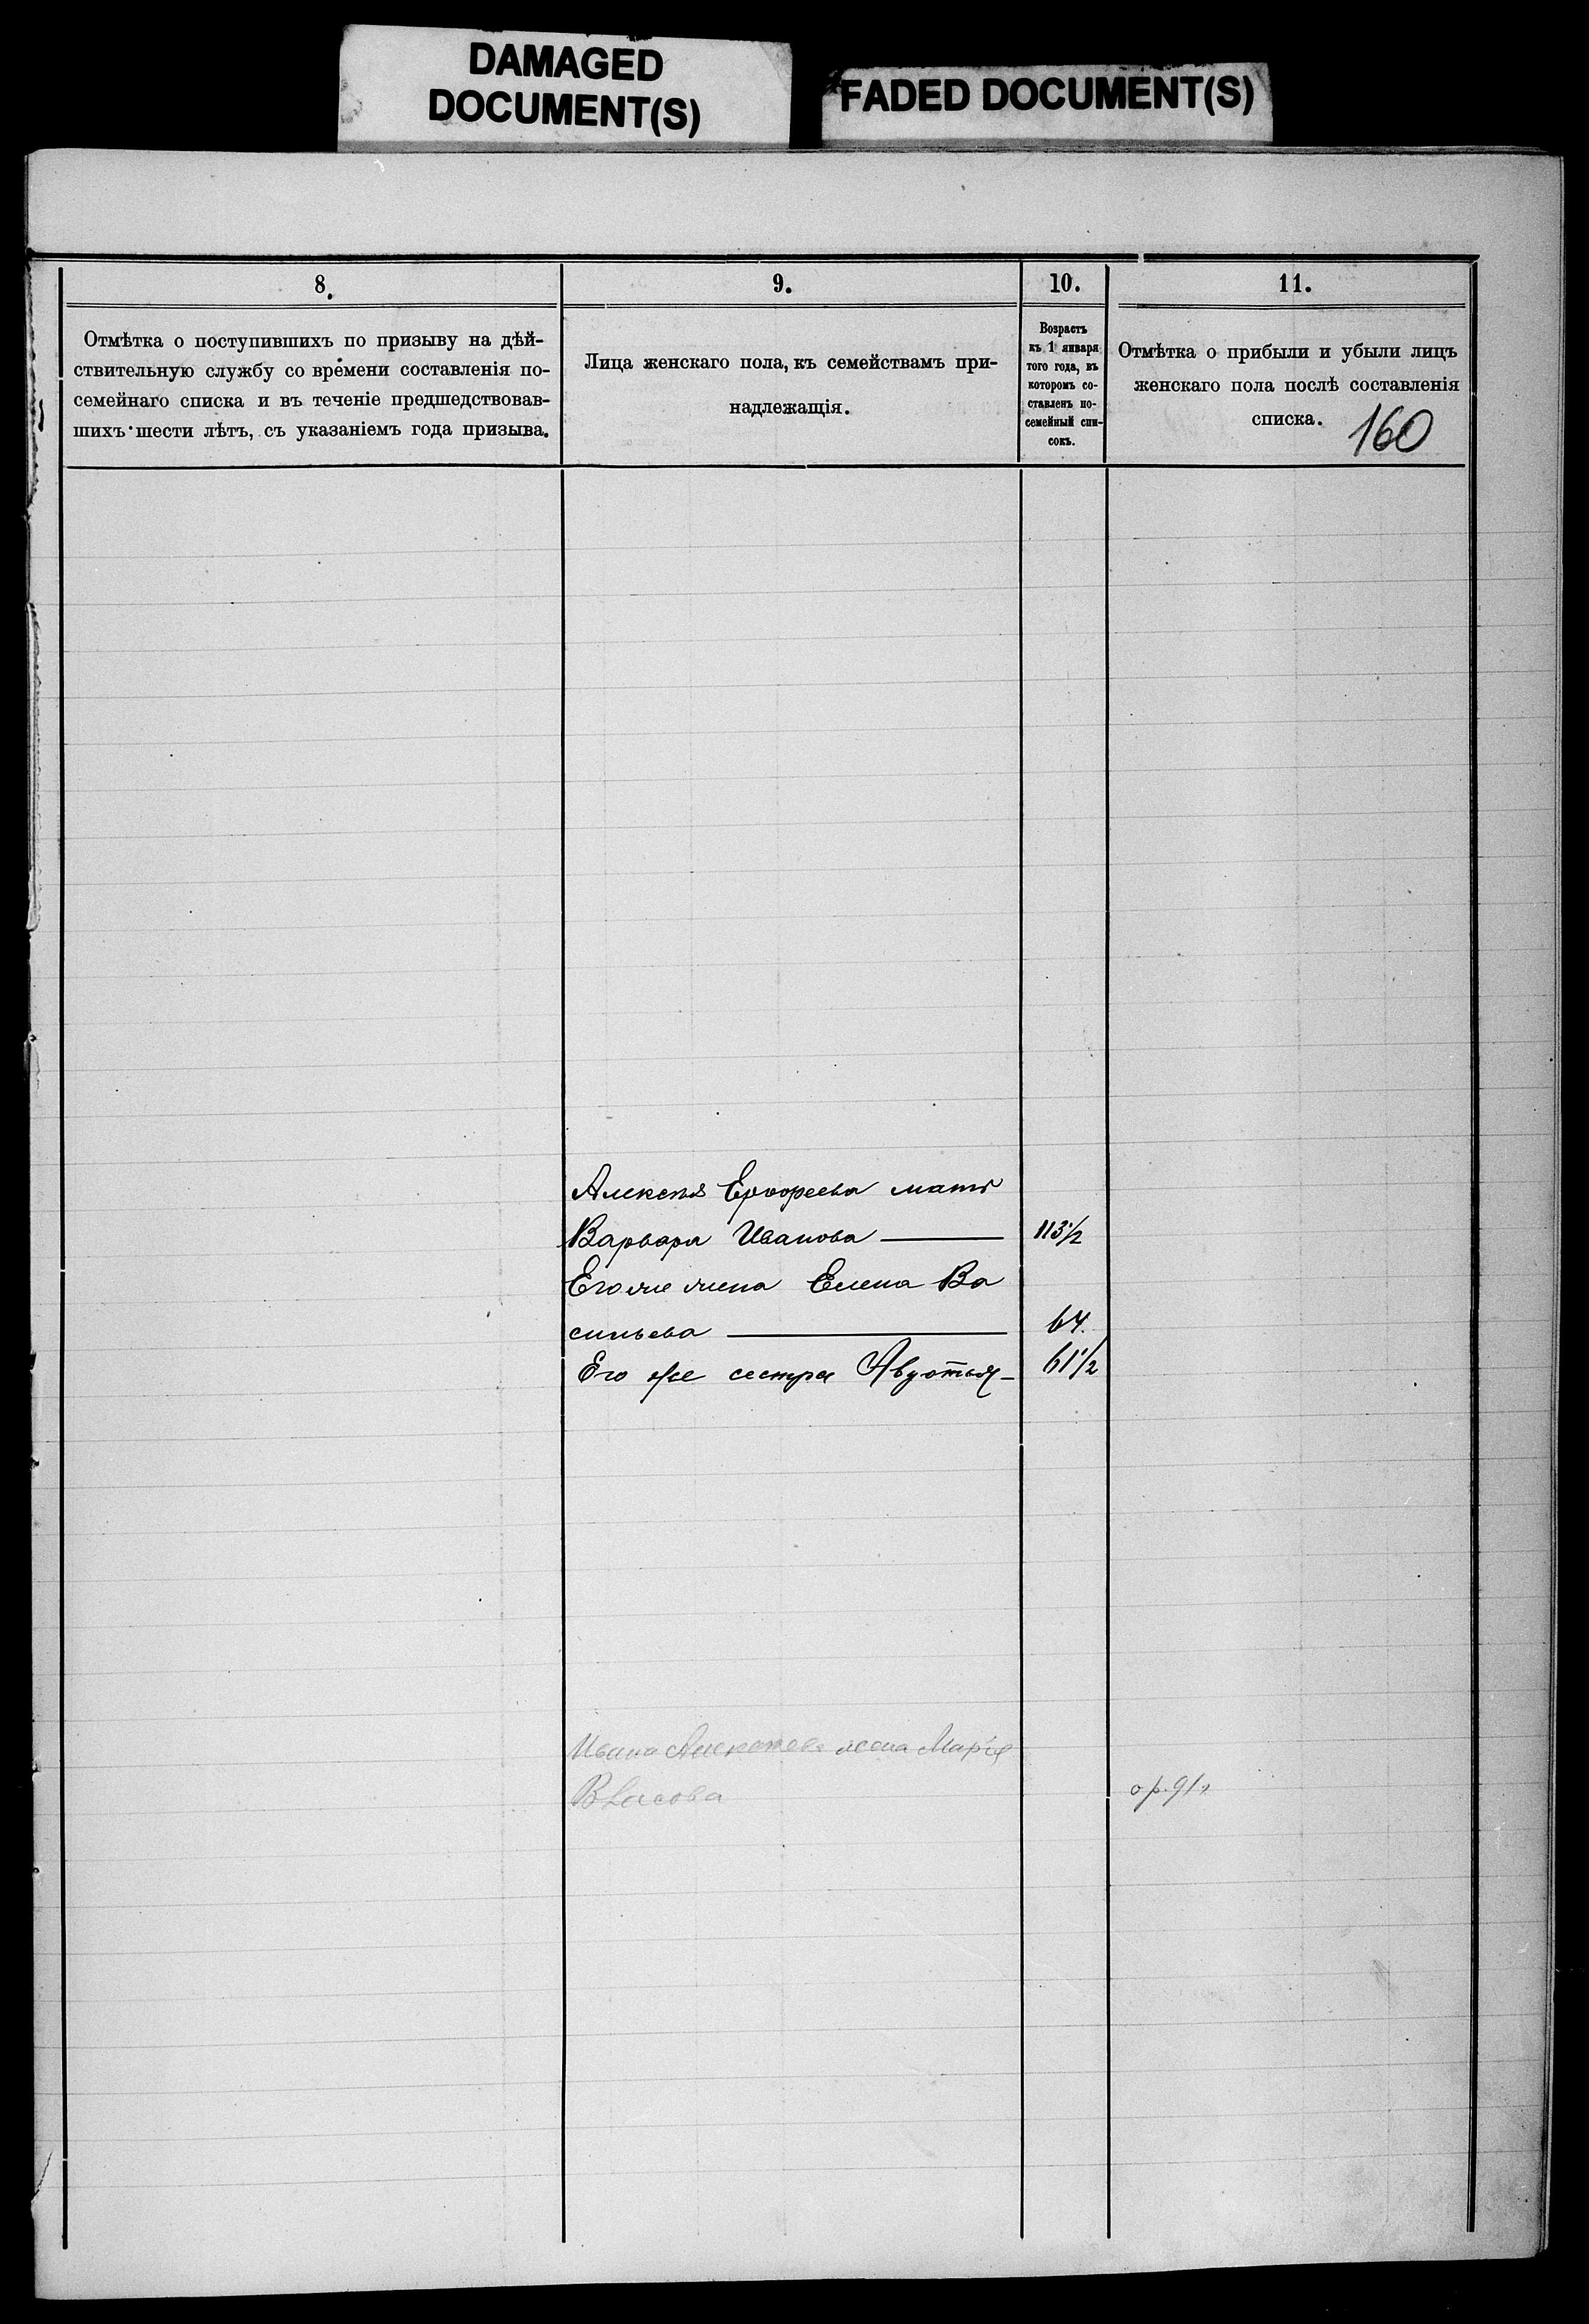 DAMAGED
DOCUMENT(S)
FADED DOCUMENT(S)
8.
9.
10.
11.
Отмѣтка о поступившихъ по призыву на дѣй-
ствительную службу со времени составленія по-
семейнаго списка и въ теченіе предшедствовав-
шихъ шести лѣтъ, съ указаніемъ года призыва.
Лица женскаго пола, къ семействамъ при-
надлежащія.
Возрастъ
къ 1 января
того года, въ
которомъ со-
ставленъ по-
семейный спи-
сокъ.
Отмѣтка о прибыли и убыли лицъ
женскаго пола послѣ составленія
списка.
160
Алексѣя мать
Варвара Иванова 113½
Его же жена Елена Ва
сильева 64.
Его же сестра Авдотья 61½
Ивана Алексѣева жена Марія
Власова